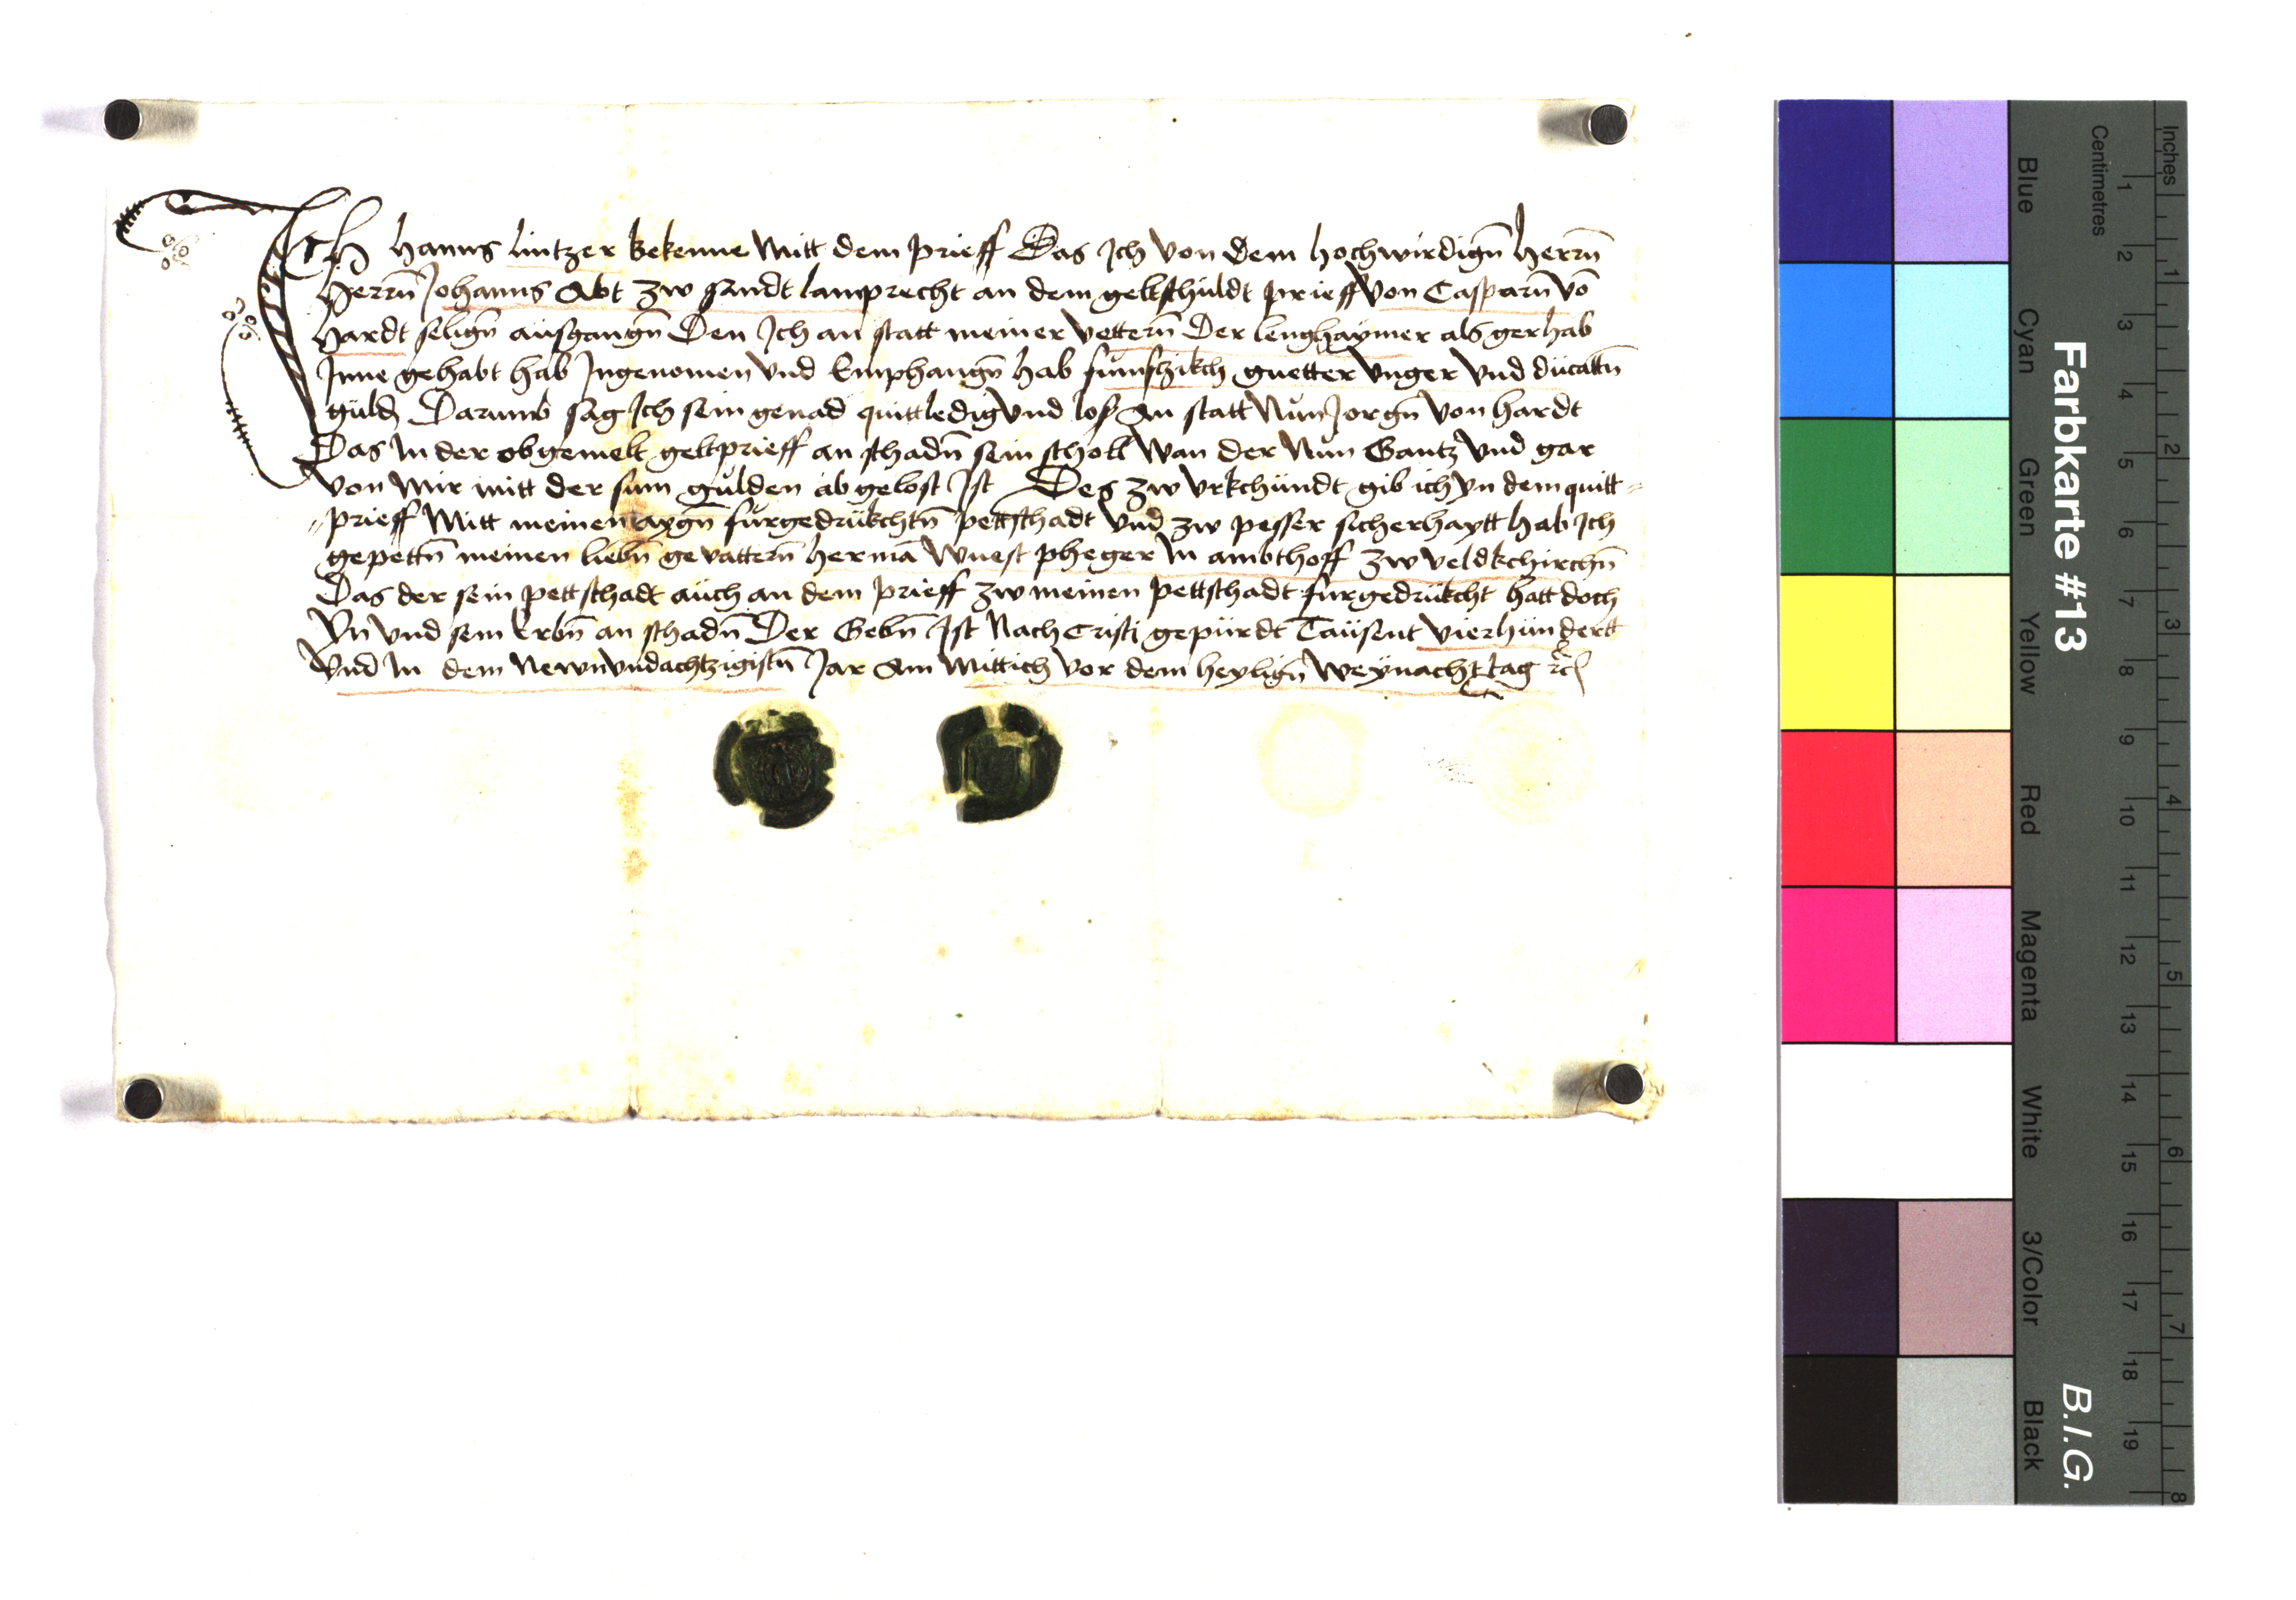 Ich hanns lintzer bekenne Mitt dem prieff Das Ich von dem hochwirdigñ herrñ
herrñ Johanns Abt zw sandt lamprecht an dem geltschuldt prieff von Casparñ võ
hardt seligñ ausgangñ Den Ich an statt meiner vetterñ Der lenghaymer als gerhab
Inne gehabt hab Ingenomen vnd Emphangñ hab funfzikch guetter vnger vnd ducattñ
guld Darumb sag Ich sein genad quitt ledig vnd los An statt Nun Jorgñ von hardt
Das In der obgemelt geltprieff an schadñ sein scholl Wan der Nun Gantz vnd gar
von Mir mitt der sum gulden abgelost Ist Des zw vrkchundt gib ich yn dem quitt=
=prieff Mitt meinen aygñ furgedrukchtñ pettschadt vnd zw pesser sicherhaytt hab Ich
gepettñ meinen liebñ gevatterñ hermã Wuest pheger In ambthoff zw veldkchirchñ
Das der sein pettschadt auch an dem prieff zw meinen pettschadt furgedrukcht hatt doch
Yn vnd sein Erbñ an schadñ Der Gebñ Ist Nach Cristi gepurdt Tausent vierhundertt
Vnd In dem Newnvndachtzigistñ Jar Am Mittich vor dem heyligñ Weynacht tag ꝛc
Farbkarte #13
B.I.G.
Inches
1 2 3 4 5 6 7 8
Centimetres
1 2 3 4 5 6 7 8 9 10 11 12 13 14 15 16 17 18 19
Blue
Cyan
Green
Yellow
Red
Magenta
White
3/Color
Black